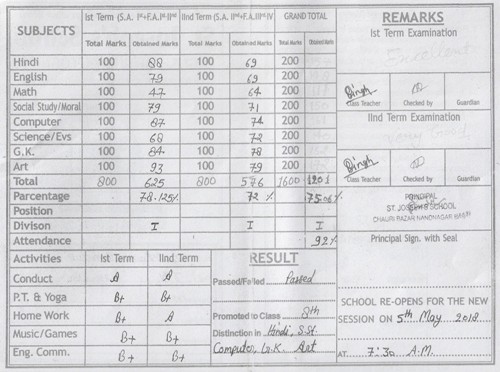 SUBJECTS Ist Term (S.A. Ist+F.A.Ist-IInd IInd Term (S.A. IInd+F.A.IIIrd-IV GRAND TOTAL
Total Marks Obtained Marks Total Marks Obtained Marks Total Marks Obtained Marks
Hindi 100 88 100 69 200
English 100 79 100 69 200
Math 100 47 100 64 200
Social Study/Moral 100 79 100 71 200
Computer 100 87 100 74 200
Science/Evs 100 68 100 72 200
G.K. 100 84 100 78 200
Art 100 93 100 79 200
Total 800 625 800 576 1600 1201
Parcentage 78.125% 72 % 75.06%
Position
Divison I I I
Attendance 92%
Activities Ist Term IInd Term
Conduct A A
P.T. & Yoga B+ B+
Home Work B+ A
Music/Games B+ B+
Eng. Comm. B+ B+
RESULT
Passed/Failed Passed
Promoted to Class 8th
Distinction in Hindi, S.St.
Computer, G.K. Art
REMARKS
Ist Term Examination
Excellent
Singh
Class Teacher Checked by Guardian
IInd Term Examination
Very Good
Singh
Class Teacher Checked by Guardian
PRINCIPAL
ST. JOSEPH'S SCHOOL
Principal Sign. with Seal
SCHOOL RE-OPENS FOR THE NEW
SESSION ON 5th May 2018
AT 7:30 A.M.